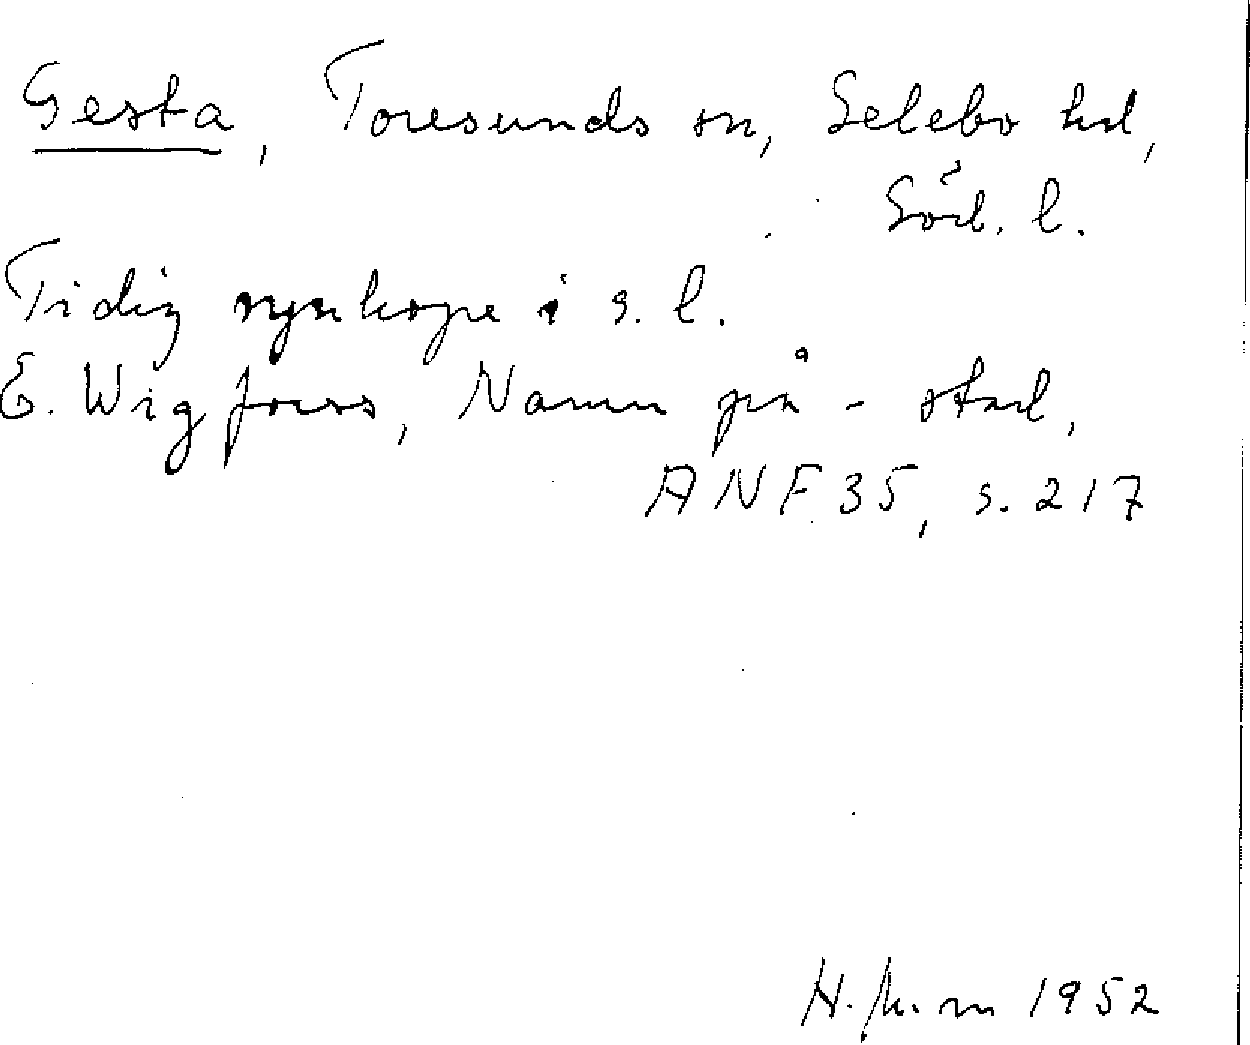 Gesta, Toresunds sn, Selebo hd,
Söd. l.
Tidig synkope i s. l.
E. Wigforss, Namn på - stad,
ANF 35, s. 217
1952